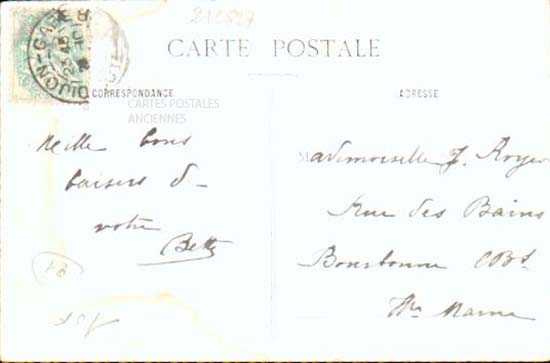 212527
CARTE POSTALE
DIJON-GARE
CORRESPONDANCE
ADRESSE
CARTES POSTALES
ANCIENNES
Mille bons
baisers d
votre
Betty
Mademoiselle J. Royer
Rue des Bains
Bourbonne
Hte Marne